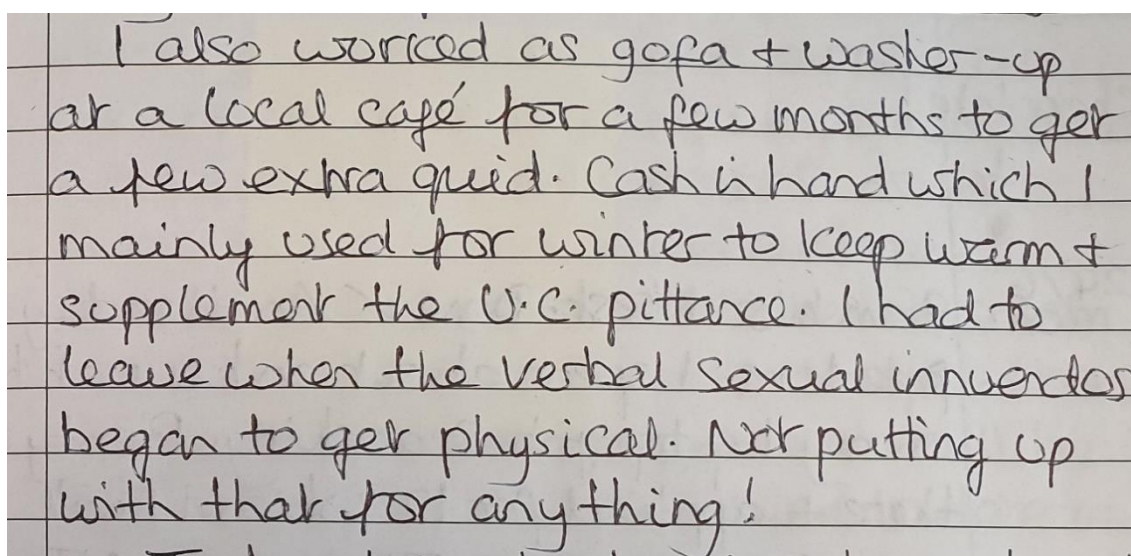 I also worked as gofa + washer-up
at a local café for a few months to get
a few extra quid. Cash in hand which I
mainly used for winter to keep warm +
supplement the U.C. pittance. I had to
leave when the verbal sexual innuendos
began to get physical. Not putting up
with that for anything!